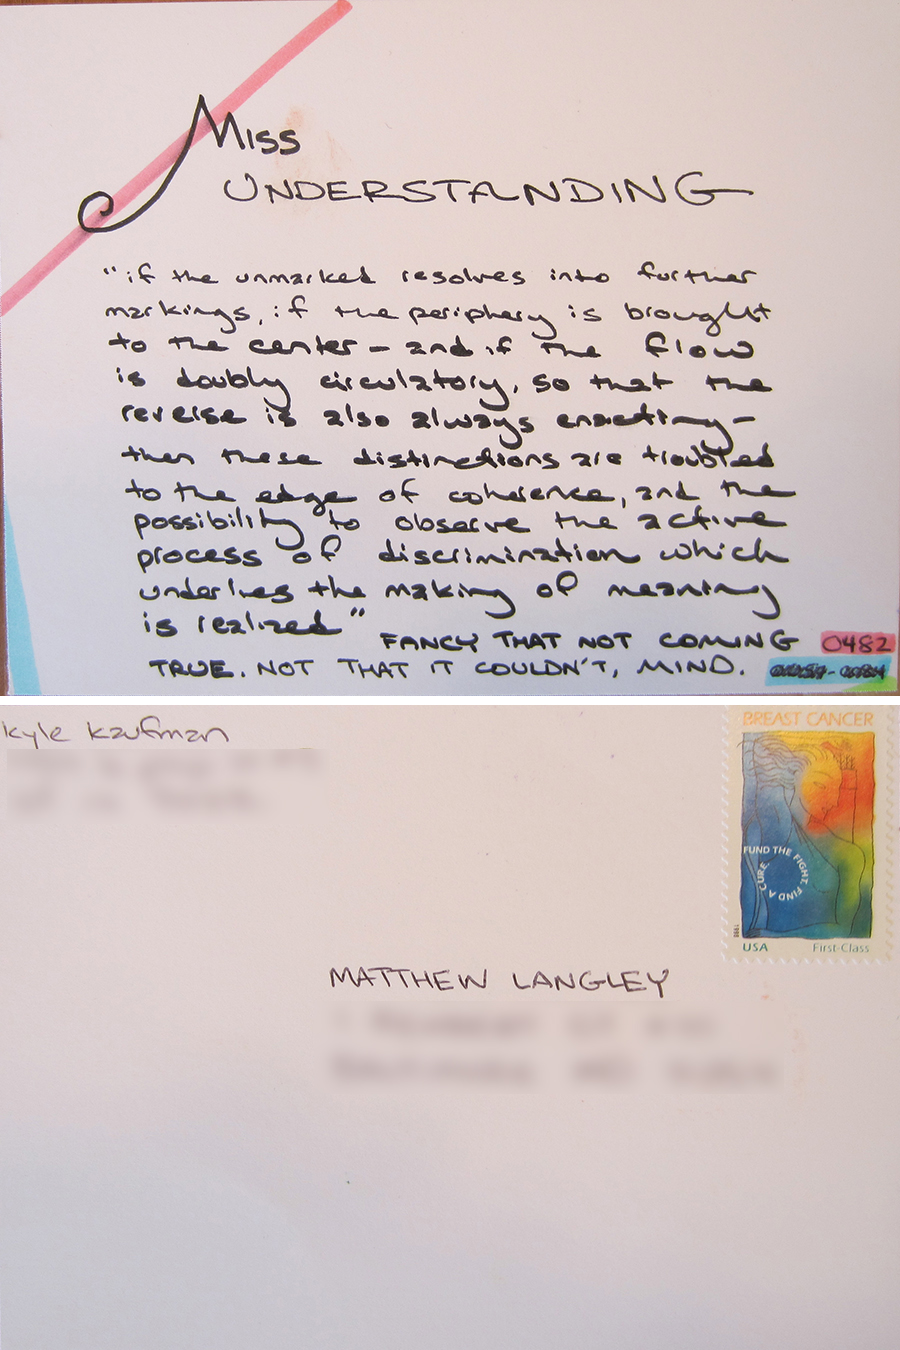 Miss
UNDERSTANDING
"if the unmarked resolves into further
markings, if the periphery is brought
to the center - and if the flow
is doubly circulatory, so that the
reverse is also always enacting -
then these distinctions are troubled
to the edge of coherence, and the
possibility to observe the active
process of discrimination which
underlies the making of meaning
is realized"
FANCY THAT NOT COMING
0482
TRUE. NOT THAT IT COULDN'T, MIND.
Kyle Kaufman
BREAST CANCER
FUND THE FIGHT. FIND A CURE
1998
USA First-Class
MATTHEW LANGLEY